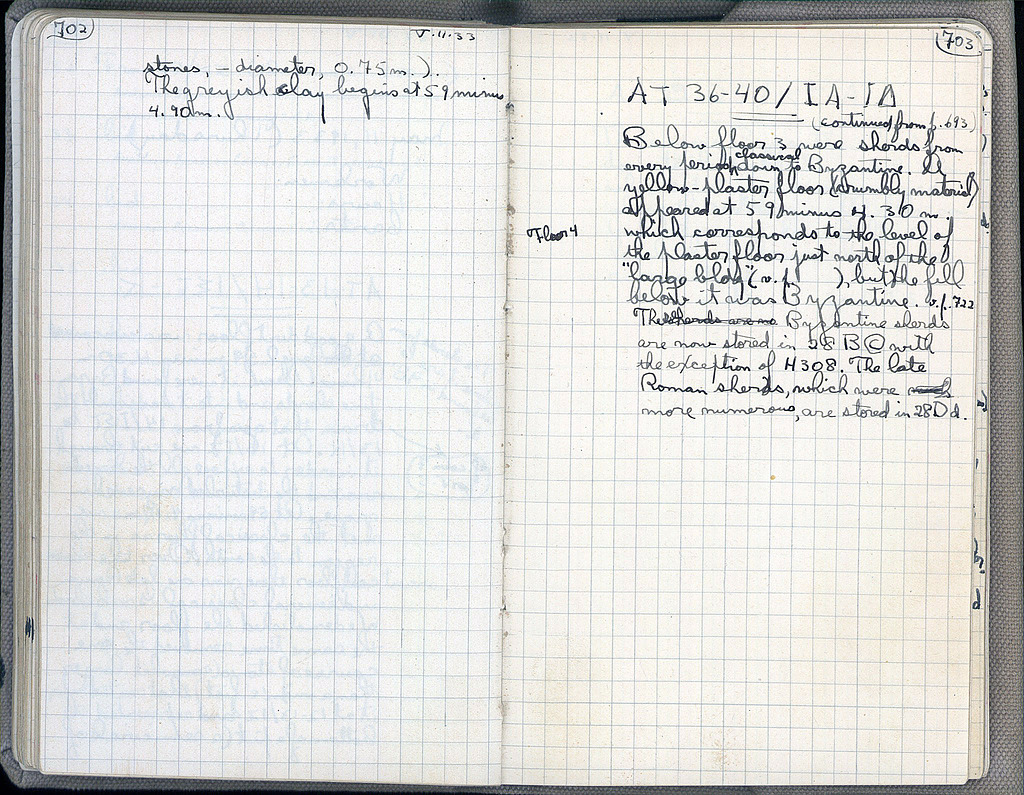 702
V.11.33
stones, - diameter, 0.75 m.).
The greyish clay begins at 59 minus
4.90 m.
703
AT 36-40/IA-IΔ
(continued from p. 693)
Below floor 3 were sherds from
every period classical down to Byzantine. A
yellow-plaster floor (crumbly material)
appeared at 59 minus 4.30 m.
Floor 4
which corresponds to the level of
the plaster floor just north of the
"large bldg" (v. p. ), but the fill
below it was Byzantine. v. p. 722
The sherds are no Byzantine sherds
are now stored in 28 B C with
the exception of H308. The late
Roman sherds, which were
more numerous, are stored in 28 D d.